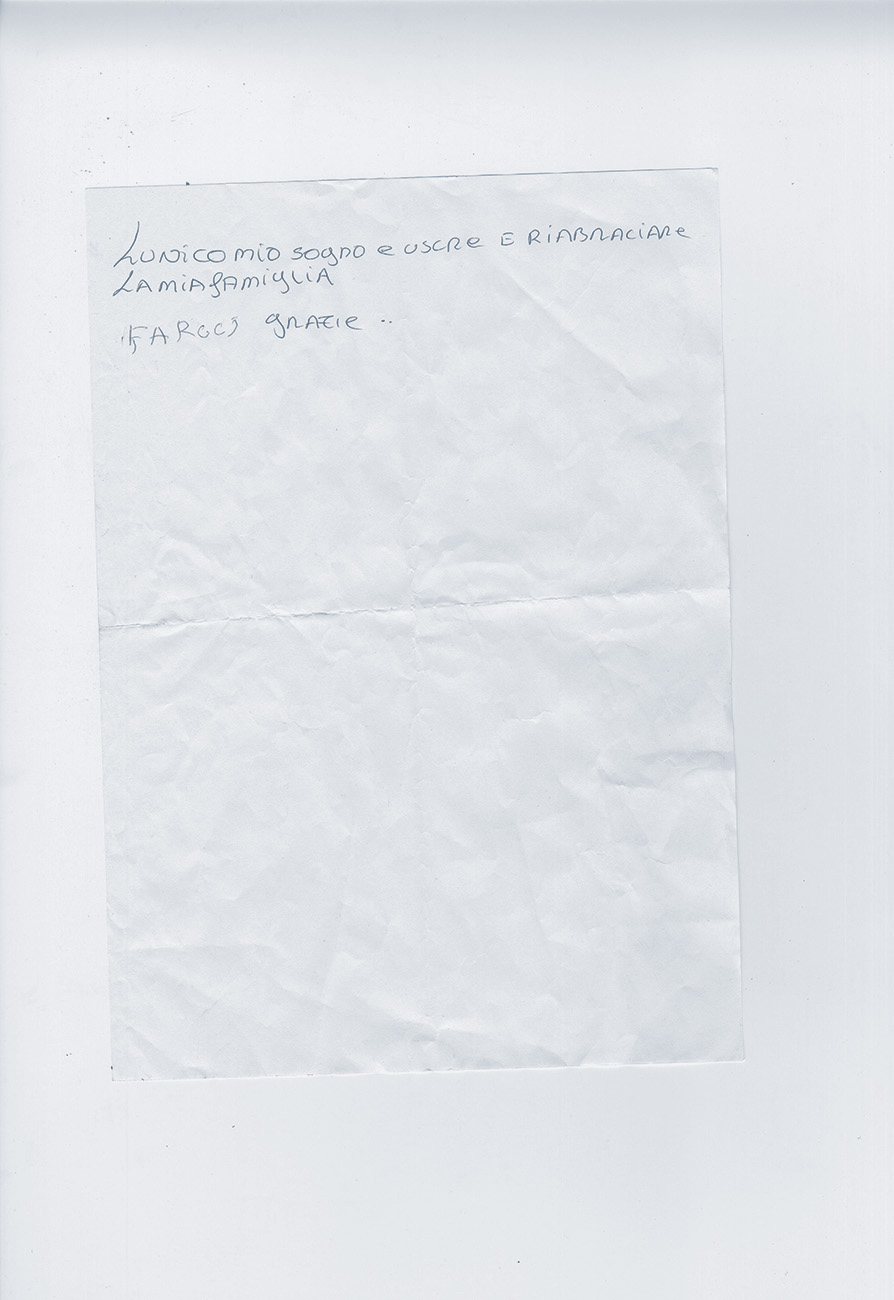 Lunico mio sogno e uscre e riabraciare
la mia famiglia
grazie ..